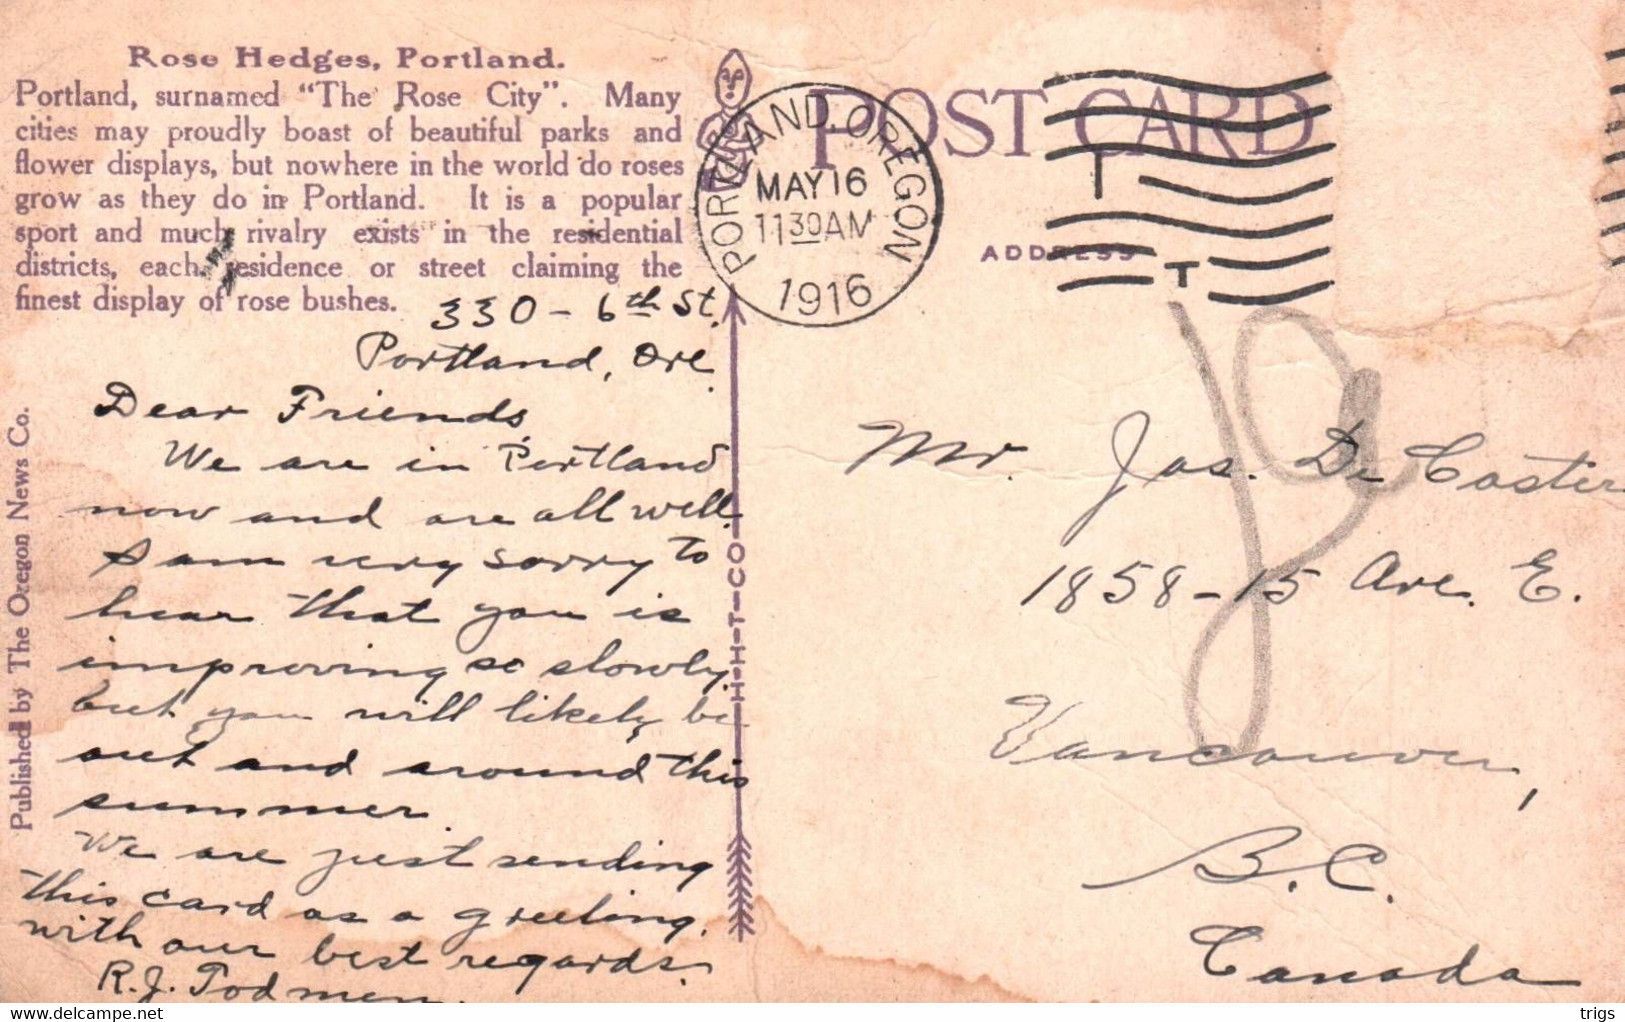 Rose Hedges, Portland.
Portland, surnamed "The Rose City". Many
cities may proudly boast of beautiful parks and
flower displays, but nowhere in the world do roses
grow as they do in Portland. It is a popular
sport and much rivalry exists in the residential
districts, each residence or street claiming the
finest display of rose bushes.
330 - 6th St.
Portland, Ore.
Dear Friends,
We are in Portland
now and are all well.
I am very sorry to
hear that you is
improving so slowly
but you will likely be
out and around this
summer
We are just sending
this card as a greeting
with our best regards.
R. J.
Published by The Oregon News Co.
H-H-T-CO
POST CARD
ADDRESS
PORTLAND, OREGON
MAY 16
1130 AM
1916
T
Mr. Jas. De Coster
1858-15 Ave. E.
Vancouver,
B.C.
Canada
www.delcampe.net
trigs